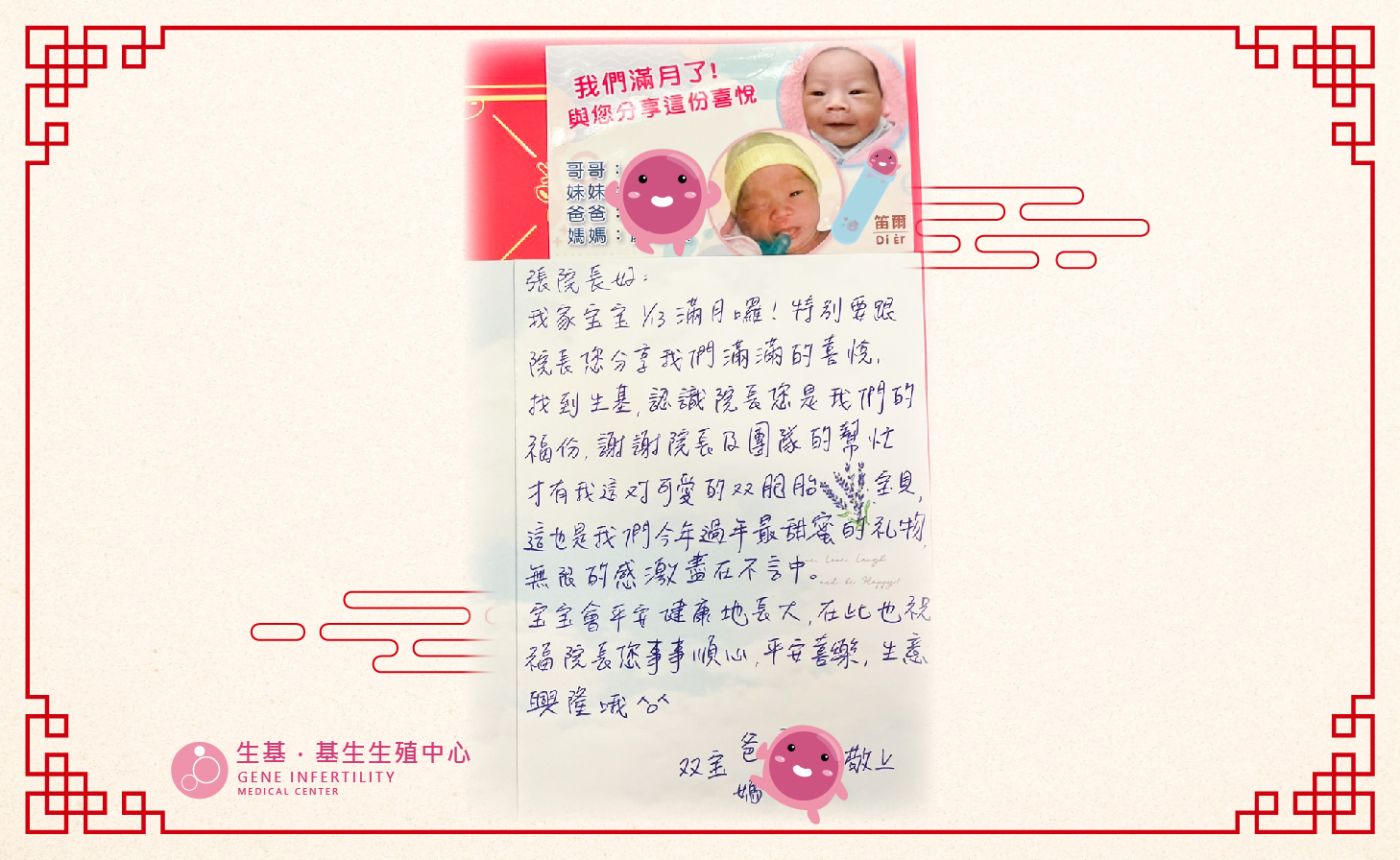 我們滿月了!
與您分享這份喜悅
哥哥：
妹妹
爸爸：
媽媽：
笛爾
Dièr
張院長好：
我家宝宝1/13滿月囉！特別要跟
院長您分享我們滿滿的喜悅，
找到生基，認識院長您是我們的
福份，謝謝院長及團隊的幫忙
才有我這对可愛的双胞胎宝貝，
這也是我們今年過年最甜蜜的礼物，
無限的感激盡在不言中。
Love, Laugh
and be Happy!
宝宝會平安健康地長大，在此也祝
福院長您事事順心，平安喜樂，生意
興隆哦^^
双宝爸
媽
敬上
生基·基生生殖中心
GENE INFERTILITY
MEDICAL CENTER